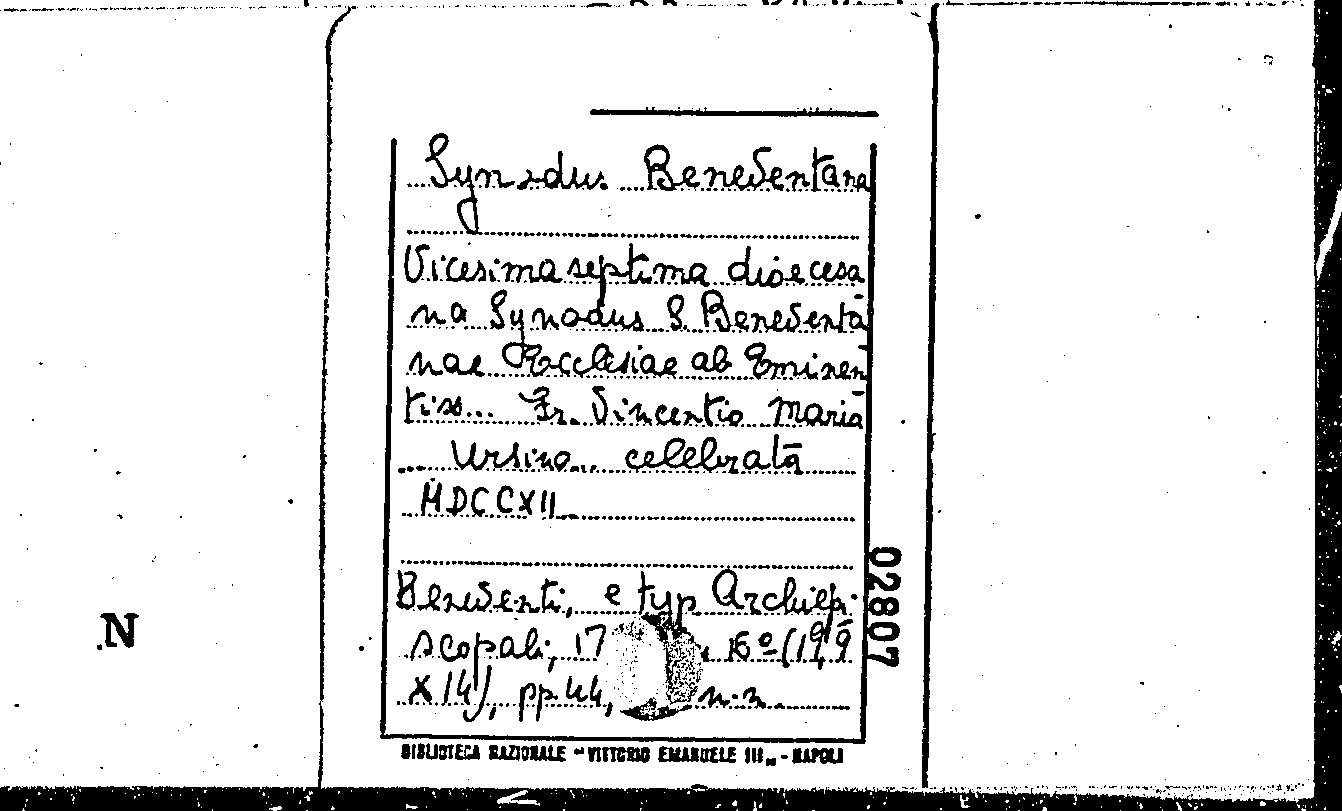 Synodus Beneventana
Vicesima septima dioecesa
na Synodus S. Beneventa
nae Ecclesiae ab Eminen
tiss... Fr. Vincentio Maria
... Ursino... celebrata
MDCCXII
Beneventi, e typ. Archiepi-
scopali, 17 , 16º (19,9
X 14), pp. 44, n.n.
BIBLIOTECA NAZIONALE "VITTORIO EMANUELE III" - NAPOLI
02807
N